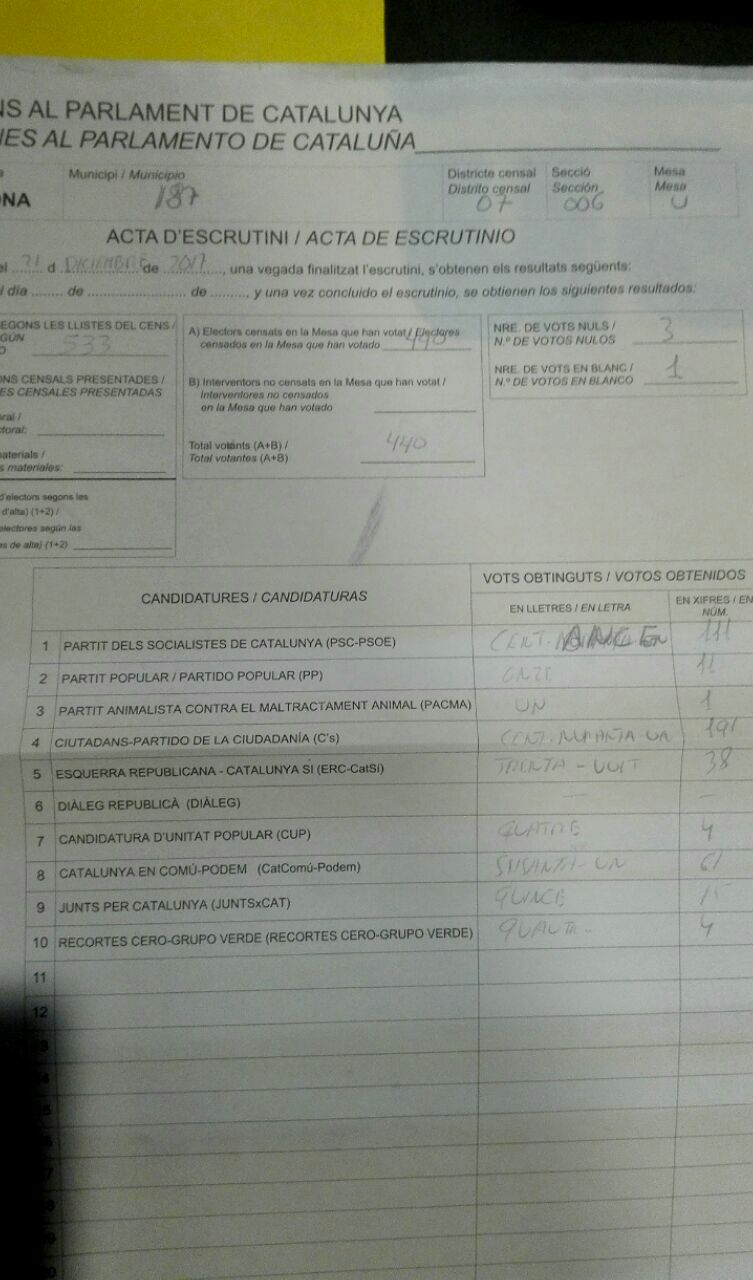 NS AL PARLAMENT DE CATALUNYA
NES AL PARLAMENTO DE CATALUÑA
Municipi / Municipio
187
Districte censal
Distrito censal
07
Secció
Sección
006
Mesa
Mesa
U
ONA
ACTA D'ESCRUTINI / ACTA DE ESCRUTINIO
el 21 d DICIEMBRE de 2017, una vegada finalitzat l'escrutini, s'obtenen els resultats següents:
l día ........ de ........................ de ........., y una vez concluido el escrutinio, se obtienen los siguientes resultados:
EGONS LES LLISTES DEL CENS /
GÚN
O
533
ONS CENSALS PRESENTADES /
ES CENSALES PRESENTADAS
oral /
ctoral:
aterials /
s materiales:
d'electors segons les
d'alta) (1+2) /
electores según las
es de alta) (1+2)
A) Electors censats en la Mesa que han votat / Electores
censados en la Mesa que han votado 440
B) Interventors no censats en la Mesa que han votat /
Interventores no censados
en la Mesa que han votado
Total votants (A+B) /
Total votantes (A+B)
440
NRE. DE VOTS NULS /
N.º DE VOTOS NULOS
3
NRE. DE VOTS EN BLANC /
N.º DE VOTOS EN BLANCO
1
CANDIDATURES / CANDIDATURAS
VOTS OBTINGUTS / VOTOS OBTENIDOS
EN LLETRES / EN LETRA
EN XIFRES / EN
NÚM.
1 PARTIT DELS SOCIALISTES DE CATALUNYA (PSC-PSOE) CENT 111
2 PARTIT POPULAR / PARTIDO POPULAR (PP) ONZE 11
3 PARTIT ANIMALISTA CONTRA EL MALTRACTAMENT ANIMAL (PACMA) UN 1
4 CIUTADANS-PARTIDO DE LA CIUDADANÍA (C's) CENT. NURANTA UN 191
5 ESQUERRA REPUBLICANA - CATALUNYA SÍ (ERC-CatSí) TRENTA - VUIT 38
6 DIÀLEG REPUBLICÀ (DIÀLEG) — —
7 CANDIDATURA D'UNITAT POPULAR (CUP) QUATRE 4
8 CATALUNYA EN COMÚ-PODEM (CatComú-Podem) SEIXANTA - UN 61
9 JUNTS PER CATALUNYA (JUNTSxCAT) QUINCE 15
10 RECORTES CERO-GRUPO VERDE (RECORTES CERO-GRUPO VERDE) 4
11
12